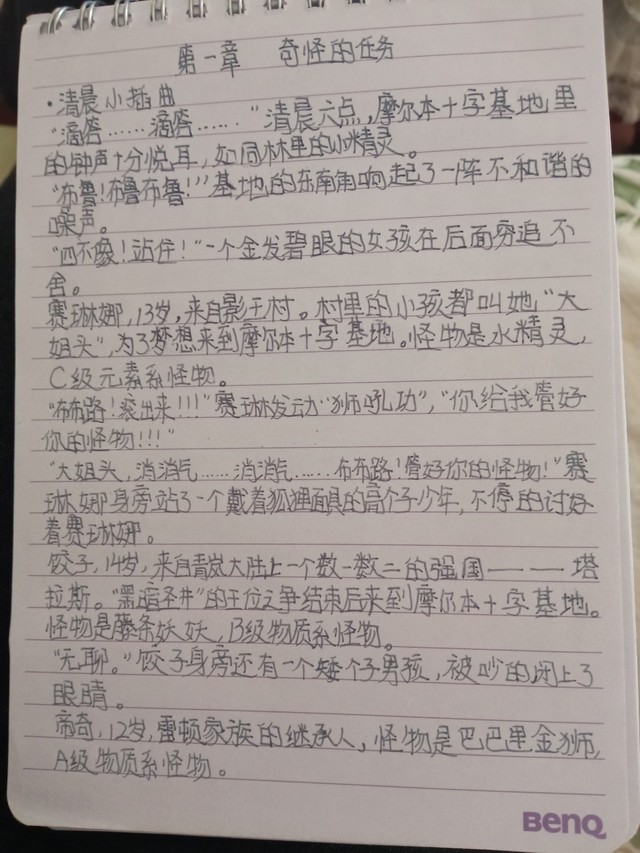 第一章 奇怪的任务
·清晨小插曲
“滴答……滴答……”清晨六点,摩尔本十字基地里
的钟声十分悦耳,如同林里的小精灵。
“布鲁!布鲁布鲁!”基地的东南角响起了一阵不和谐的
噪声。
“四不象!站住!”一个金发碧眼的女孩在后面穷追不
舍。
赛琳娜,13岁,来自影王村。村里的小孩都叫她“大
姐头”,为了梦想来到摩尔本十字基地。怪物是水精灵,
C级元素系怪物。
“布布路!滚出来!!!”赛琳发动“狮吼功”,“你给我管好
你的怪物!!!”
“大姐头,消消气……消消气……布布路!管好你的怪物!”赛
琳娜身旁站了一个戴着狐狸面具的高个子少年,不停的讨好
着赛琳娜。
饺子,14岁,来自青岚大陆上一个数一数二的强国————塔
拉斯。“黑暗圣井”的王位之争结束后来到摩尔本十字基地。
怪物是藤条妖妖,B级物质系怪物。
“无聊。”饺子身旁还有一个矮个子男孩,被吵的闭上了
眼睛。
帝奇,12岁,雷顿家族的继承人,怪物是巴巴里金狮,
A级物质系怪物。
BenQ